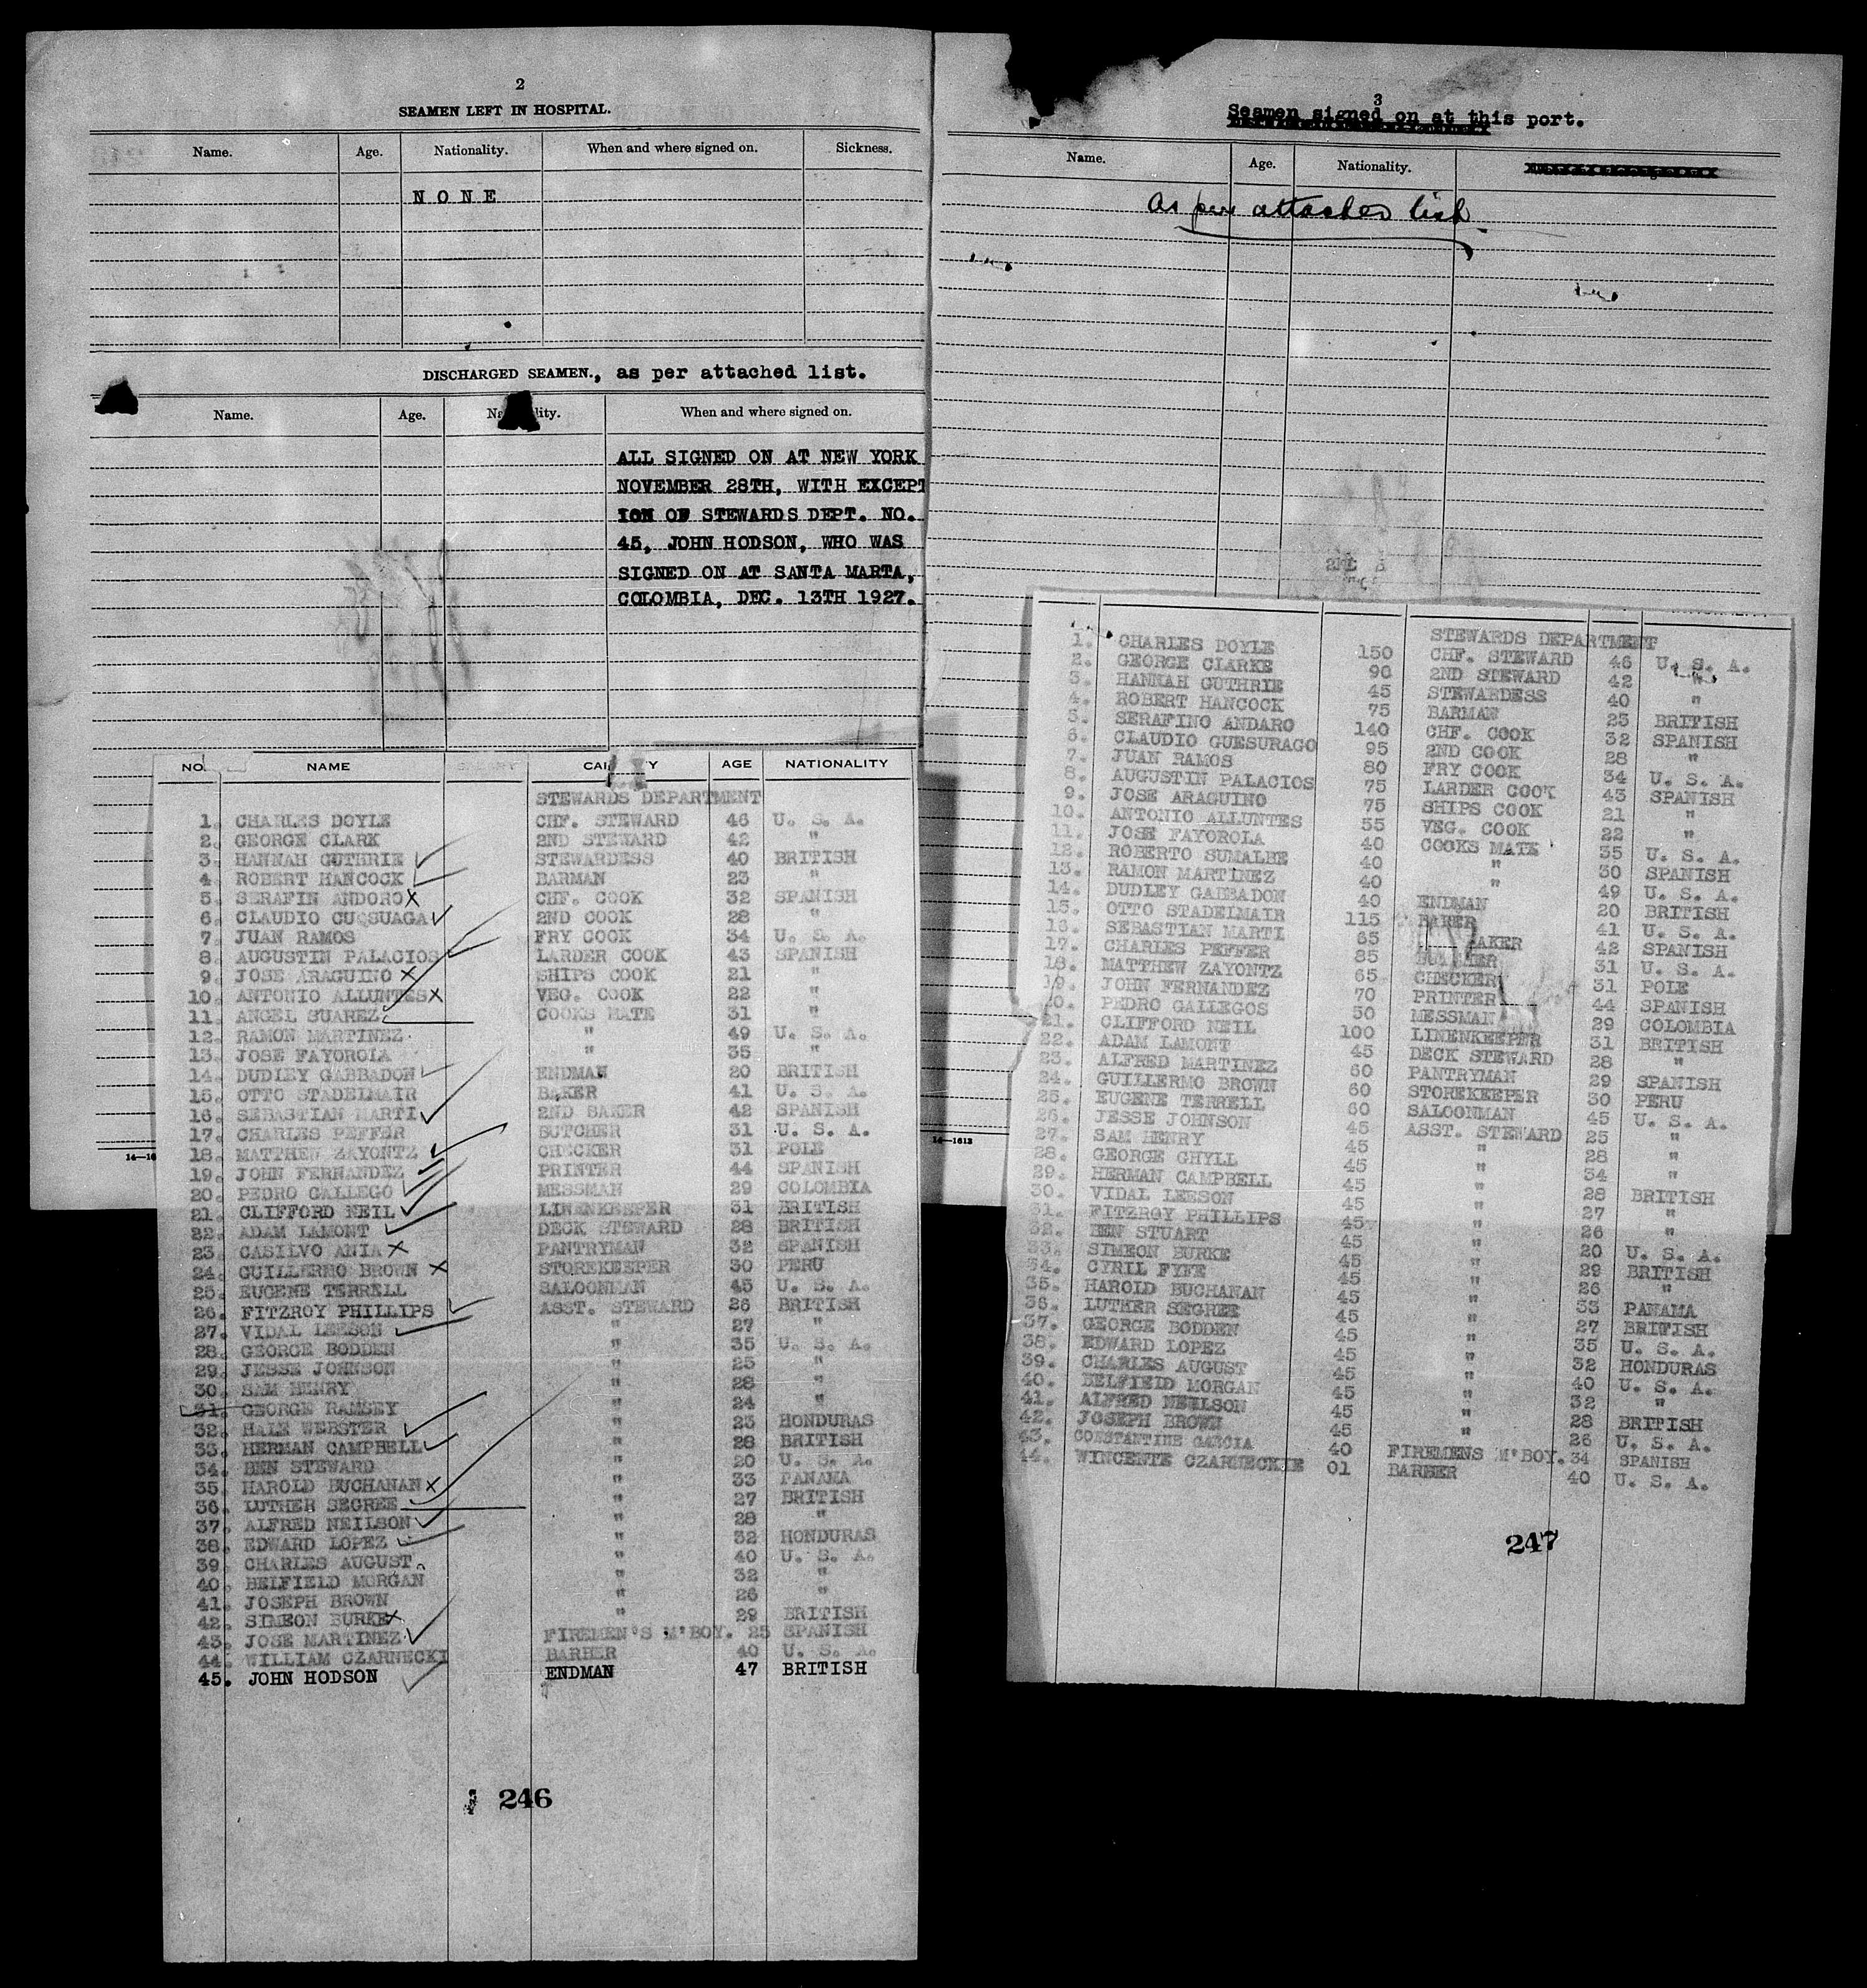 2
SEAMEN LEFT IN HOSPITAL.
Name. Age. Nationality. When and where signed on. Sickness.
NONE
DISCHARGED SEAMEN., as per attached list.
Name. Age. Na lity. When and where signed on.
ALL SIGNED ON AT NEW YORK
NOVEMBER 28TH, WITH EXCEPT
ION OF STEWARDS DEPT. NO.
45, JOHN HODSON, WHO WAS
SIGNED ON AT SANTA MARTA,
COLOMBIA, DEC. 13TH 1927.
NO. NAME AGE NATIONALITY
STEWARDS DEPARTMENT
1. CHARLES DOYLE CHF. STEWARD 46 U. S. A.
2. GEORGE CLARK 2ND STEWARD 42 "
3. HANNAH GUTHRIE STEWARDESS 40 BRITISH
4. ROBERT HANCOCK BARMAN 23 "
5. SERAFIN ANDORO X CHF. COOK 32 SPANISH
6. CLAUDIO CUQSUAGA 2ND COOK 28 "
7. JUAN RAMOS FRY COOK 34 U. S. A.
8. AUGUSTIN PALACIOS LARDER COOK 43 SPANISH
9. JOSE ARAGUINO X SHIPS COOK 21 "
10. ANTONIO ALLUNTES X VEG. COOK 22 "
11. ANGEL SUAREZ COOKS MATE 31 "
12. RAMON MARTINEZ " 49 U. S. A.
13. JOSE FAYOROLA " 35 "
14. DUDLEY GABBADON ENDMAN 20 BRITISH
15. OTTO STADELMAIR BAKER 41 U. S. A.
16. SEBASTIAN MARTI 2ND BAKER 42 SPANISH
17. CHARLES PEFFER BUTCHER 31 U. S. A.
18. MATTHEW ZAYONTZ CHECKER 31 POLE
19. JOHN FERNANDEZ PRINTER 44 SPANISH
20. PEDRO GALLEGO MESSMAN 29 COLOMBIA
21. CLIFFORD NEIL LINENKEEPER 31 BRITISH
22. ADAM LAMONT DECK STEWARD 28 BRITISH
23. CASILVO ANIA X PANTRYMAN 32 SPANISH
24. GUILLERMO BROWN X STOREKEEPER 30 PERU
25. EUGENE TERRELL SALOONMAN 45 U. S. A.
26. FITZROY PHILLIPS ASST. STEWARD 26 BRITISH
27. VIDAL LEESON " 27 "
28. GEORGE BODDEN " 35 U. S. A.
29. JESSE JOHNSON " 25 "
30. SAM HENRY " 28 "
31. GEORGE RAMSEY " 24 "
32. HALE WEBSTER " 23 HONDURAS
33. HERMAN CAMPBELL " 28 BRITISH
34. BEN STEWARD " 20 U. S. A.
35. HAROLD BUCHANAN X " 33 PANAMA
36. LUTHER SEGREE " 27 BRITISH
37. ALFRED NEILSON " 28 "
38. EDWARD LOPEZ " 32 HONDURAS
39. CHARLES AUGUST " 40 U. S. A.
40. BELFIELD MORGAN " 32 "
41. JOSEPH BROWN " 26 "
42. SIMEON BURKE X " 29 BRITISH
43. JOSE MARTINEZ FIREMEN'S M'BOY. 25 SPANISH
44. WILLIAM CZARNECKI BARBER 40 U. S. A.
45. JOHN HODSON ENDMAN 47 BRITISH
246
3
Seamen signed on at this port.
Name. Age. Nationality.
As per attached list
STEWARDS DEPARTMENT
1. CHARLES DOYLE 150 CHF. STEWARD 46 U. S. A.
2. GEORGE CLARKE 90 2ND STEWARD 42 "
3. HANNAH GUTHRIE 45 STEWARDESS 40 "
4. ROBERT HANCOCK 75 BARMAN 23 BRITISH
5. SERAFINO ANDARO 140 CHF. COOK 32 SPANISH
6. CLAUDIO GUESURAGO 95 2ND COOK 28 "
7. JUAN RAMOS 80 FRY COOK 34 U. S. A.
8. AUGUSTIN PALACIOS 75 LARDER COOK 43 SPANISH
9. JOSE ARAGUINO 75 SHIPS COOK 21 "
10. ANTONIO ALLUNTES 55 VEG. COOK 22 "
11. JOSE FAYOROLA 40 COOKS MATE 35 U. S. A.
12. ROBERTO SUMALBE 40 " 30 SPANISH
13. RAMON MARTINEZ 40 " 49 U. S. A.
14. DUDLEY GABBADON 40 ENDMAN 20 BRITISH
15. OTTO STADELMAIR 115 BAKER 41 U. S. A.
16. SEBASTIAN MARTI 65 BAKER 42 SPANISH
17. CHARLES PEFFER 85 31 U. S. A.
18. MATTHEW ZAYONTZ 65 CHECKER 31 POLE
19. JOHN FERNANDEZ 70 PRINTER 44 SPANISH
20. PEDRO GALLEGOS 50 MESSMAN 29 COLOMBIA
21. CLIFFORD NEIL 100 LINENKEEPER 31 BRITISH
22. ADAM LAMONT 45 DECK STEWARD 28 "
23. ALFRED MARTINEZ 60 PANTRYMAN 29 SPANISH
24. GUILLERMO BROWN 60 STOREKEEPER 30 PERU
25. EUGENE TERRELL 60 SALOONMAN 45 U. S. A.
26. JESSE JOHNSON 45 ASST. STEWARD 25 "
27. SAM HENRY 45 " 28 "
28. GEORGE GHYLL 45 " 34 "
29. HERMAN CAMPBELL 45 " 28 BRITISH
30. VIDAL LEESON 45 " 27 "
31. FITZROY PHILLIPS 45 " 26 "
32. BEN STUART 45 " 20 U. S. A.
33. SIMEON BURKE 45 " 29 BRITISH
34. CYRIL FYFE 45 " 26 "
35. HAROLD BUCHANAN 45 " 33 PANAMA
36. LUTHER SEGREE 45 " 27 BRITISH
37. GEORGE BODDEN 45 " 35 U. S. A.
38. EDWARD LOPEZ 45 " 32 HONDURAS
39. CHARLES AUGUST 45 " 40 U. S. A.
40. BELFIELD MORGAN 45 " 32 "
41. ALFRED NEILSON 45 " 28 BRITISH
42. JOSEPH BROWN 45 " 26 U. S. A.
43. CONSTANTINE GARCIA 40 FIREMENS M'BOY. 34 SPANISH
44. WINCENTE CZARNECKIE 01 BARBER 40 U. S. A.
14—1613
247